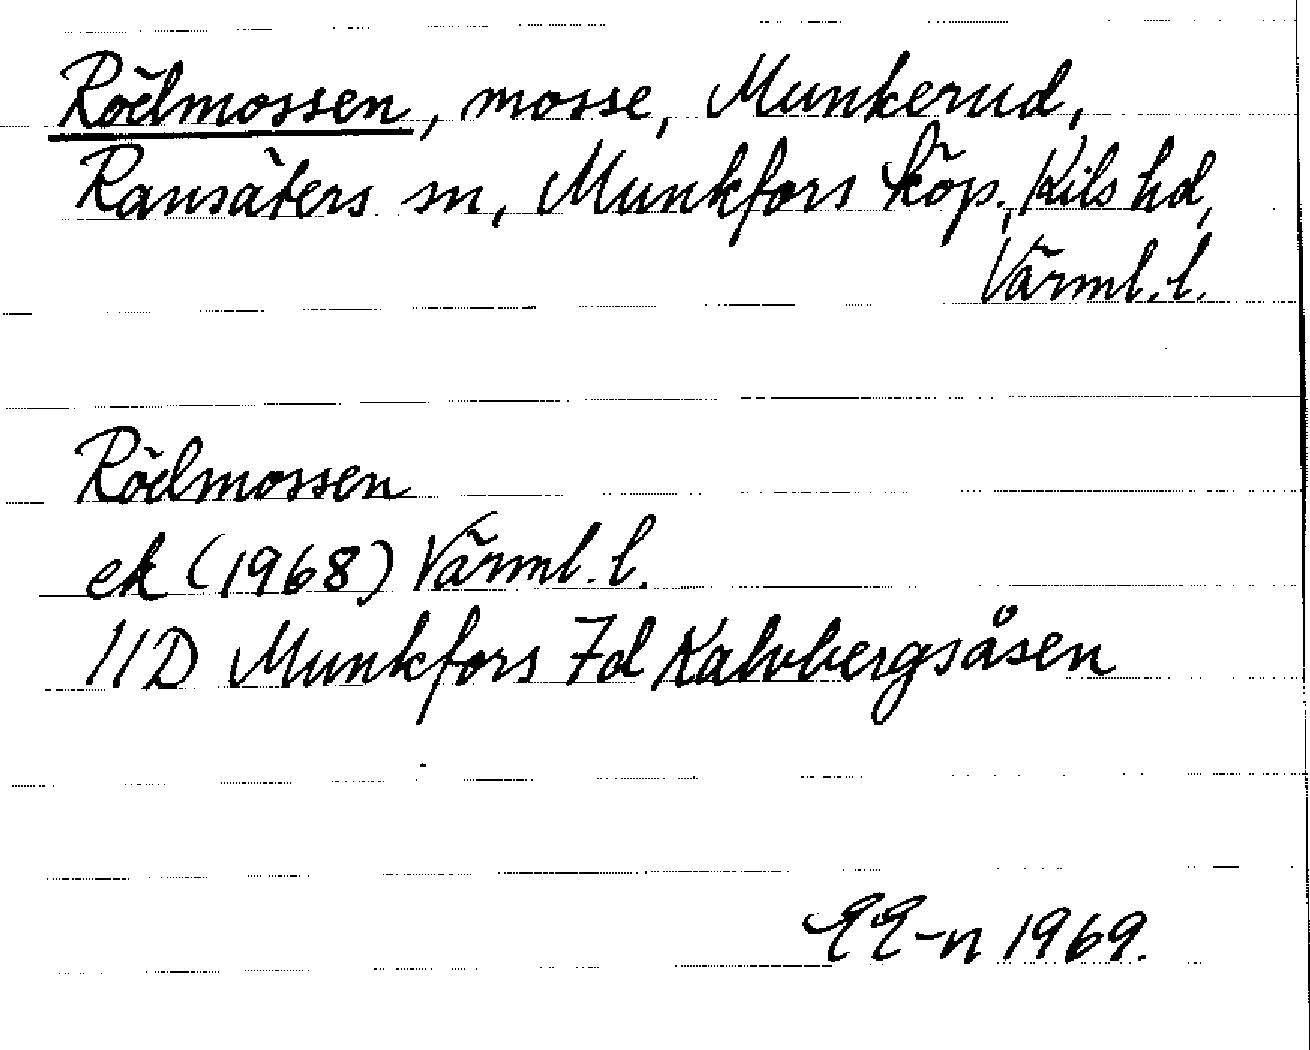 Rödmossen, mosse, Munkerud,
Ransäters sn, Munkfors köp., Kils hd,
Värml. l.
Rödmossen
ek (1968) Värml. l.
11D Munkfors 7d Kalvbergsåsen
EE-n 1969.